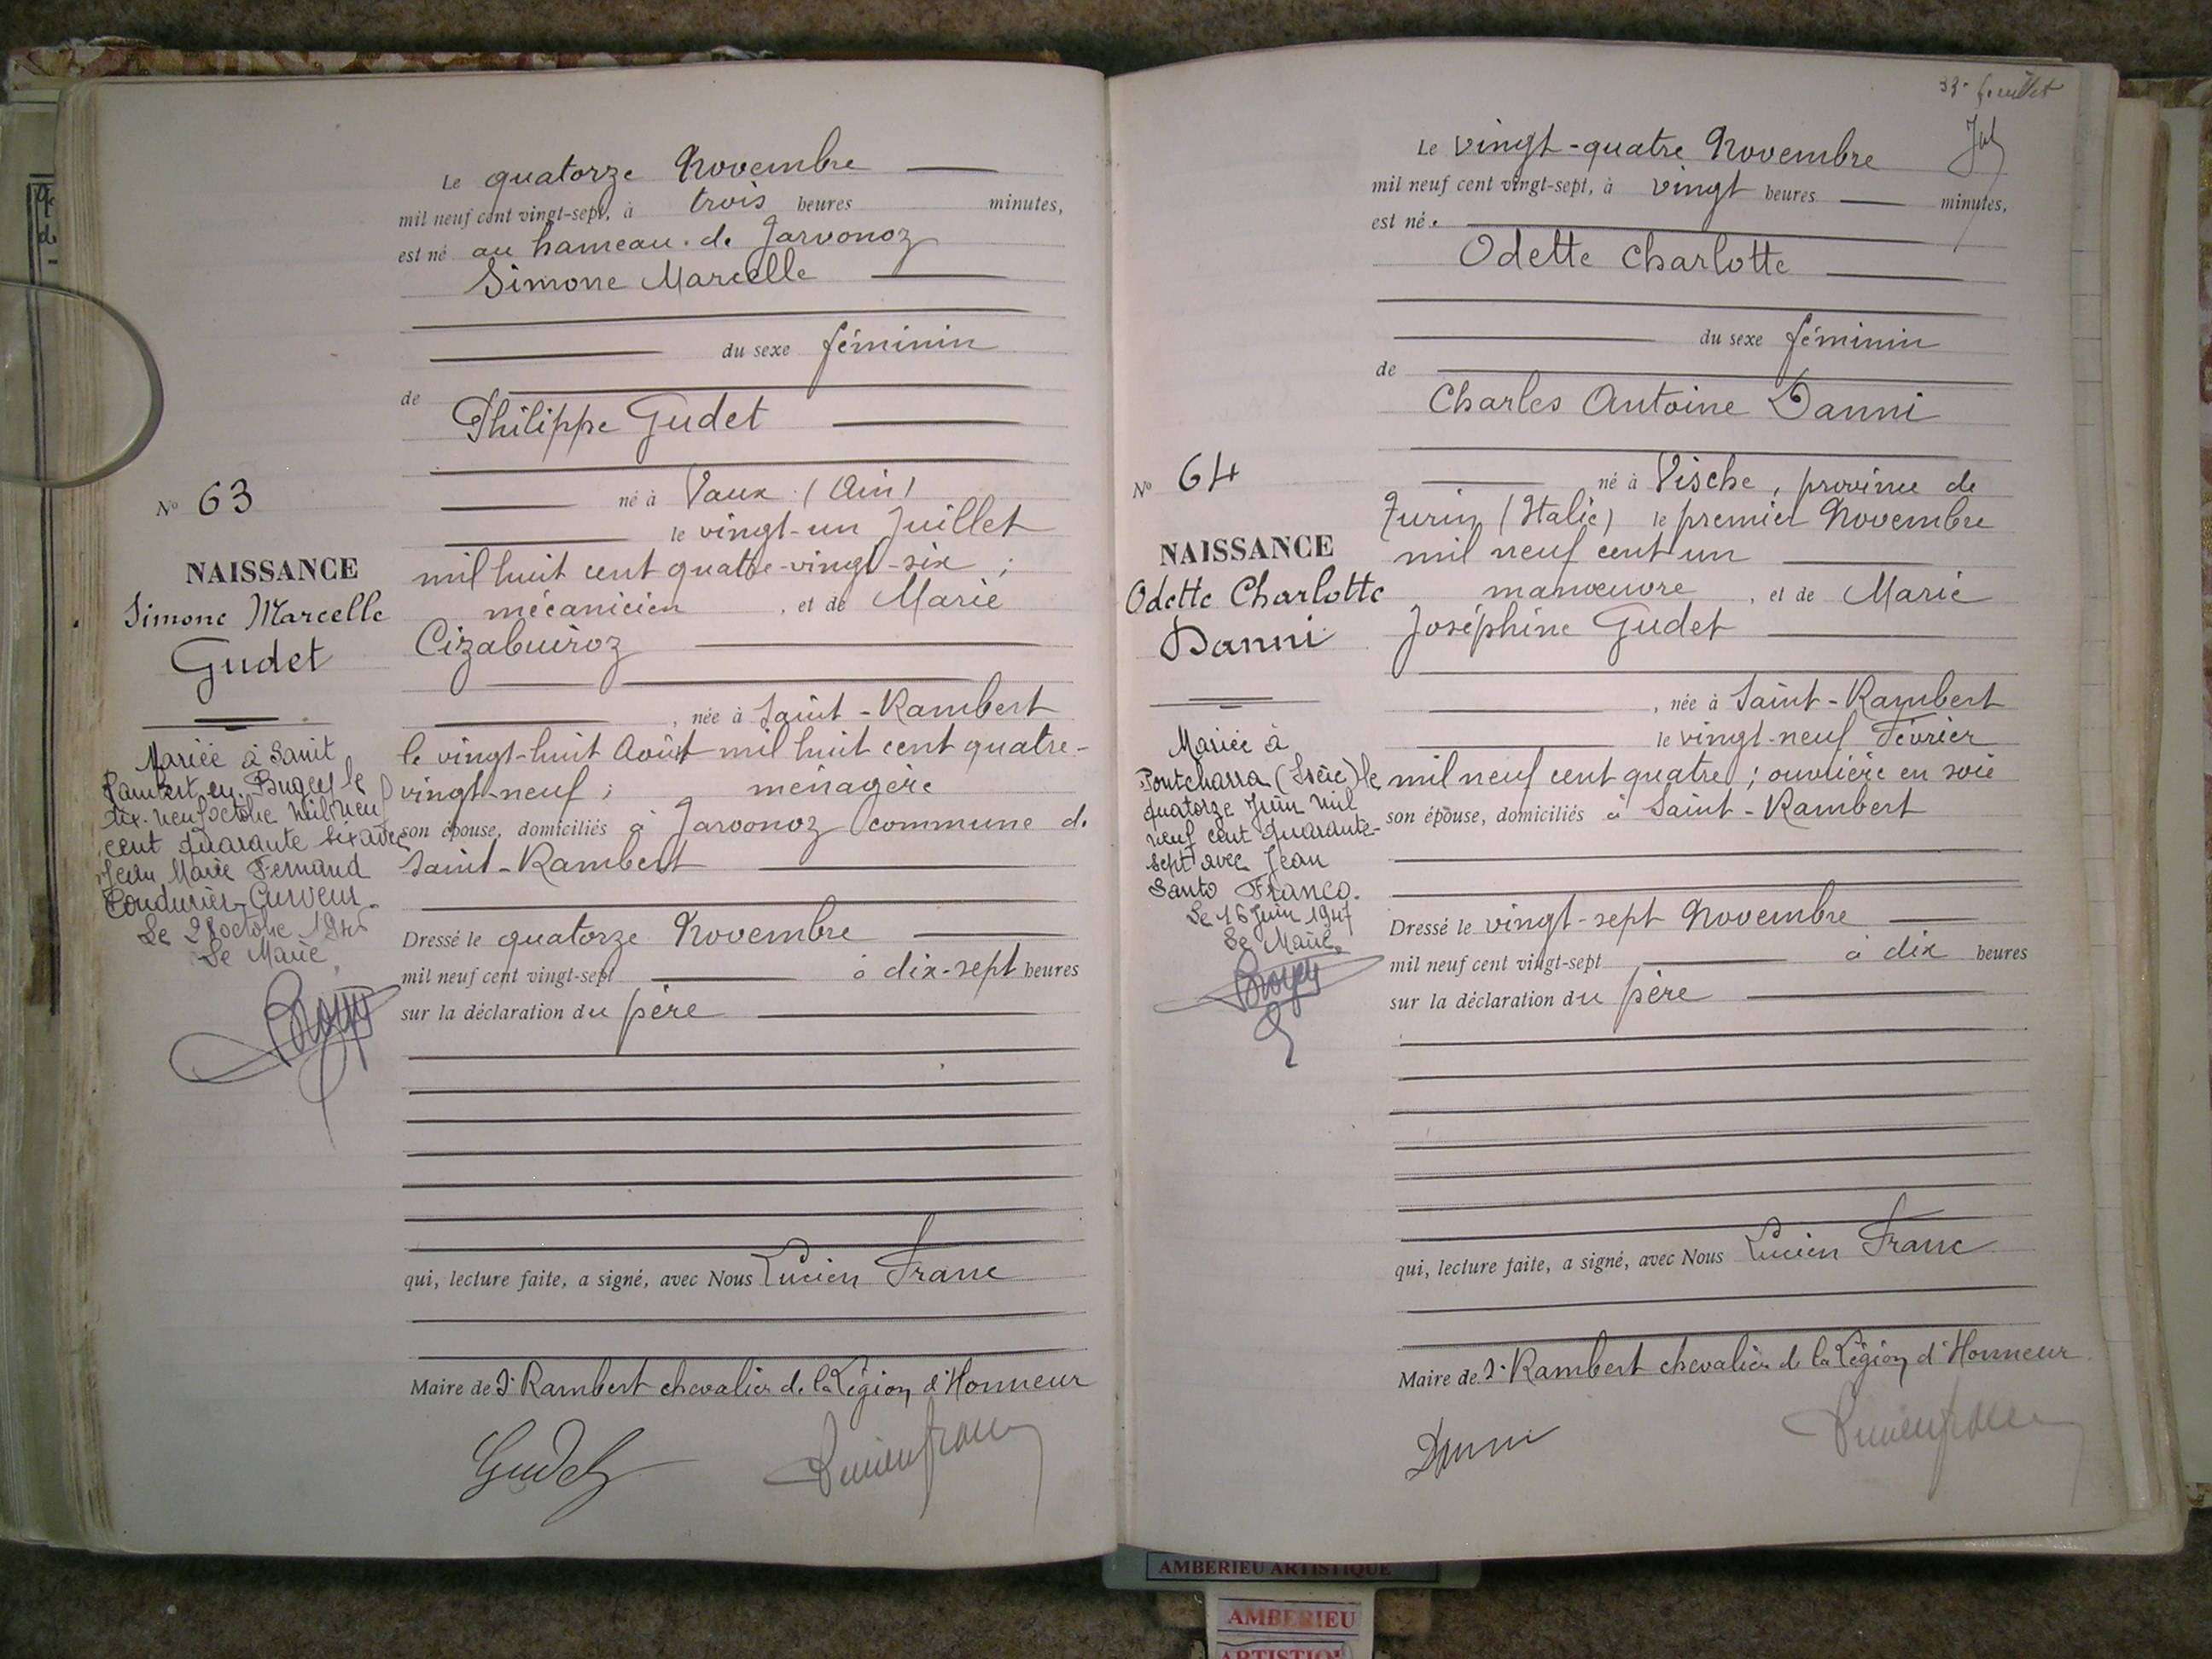 Le quatorze Novembre
mil neuf cent vingt-sept, à trois heures minutes,
est né au hameau de Javornoz
Simone Marcelle
du sexe féminin
de
Philippe Gudet
né à Vaux (Ain)
le vingt-un Juillet
mil huit cent quatre-vingt-six ;
mécanicien, et de Marie
Cizabuiroz
, née à Saint-Rambert
le vingt-huit Août mil huit cent quatre-
vingt-neuf ; ménagère
son épouse, domiciliés à Javornoz commune de
Saint-Rambert
Dressé le quatorze Novembre
mil neuf cent vingt-sept à dix-sept heures
sur la déclaration du père
qui, lecture faite, a signé, avec Nous Lucien Franc
Maire de St Rambert chevalier de la Légion d'Honneur
Gudet
Lucien Franc
No 63
NAISSANCE
Simone Marcelle
Gudet
Mariée à Saint
Rambert en Bugey le
dix-neuf octobre mil neuf
cent quarante six avec
Jean Marie Fernand
Coudurier-Curveur.
Le 28 octobre 1946
Le Maire
33e feuillet
Le vingt-quatre Novembre
mil neuf cent vingt-sept, à vingt heures minutes,
est né
Odette Charlotte
du sexe féminin
de
Charles Antoine Danni
né à Vische, province de
Turin (Italie) le premier Novembre
mil neuf cent un
manœuvre, et de Marie
Joséphine Gudet
, née à Saint-Rambert
le vingt-neuf Février
mil neuf cent quatre ; ouvrière en soie
son épouse, domiciliés à Saint-Rambert
Dressé le vingt-sept Novembre
mil neuf cent vingt-sept à dix heures
sur la déclaration du père
qui, lecture faite, a signé, avec Nous Lucien Franc
Maire de St Rambert chevalier de la Légion d'Honneur
Danni
Lucien Franc
No 64
NAISSANCE
Odette Charlotte
Danni
Mariée à
Pontcharra (Isère) le
quatorze Juin mil
neuf cent quarante-
sept avec Jean
Santo Franco.
Le 16 Juin 1947
Le Maire
AMBERIEU ARTISTIQUE
AMBERIEU